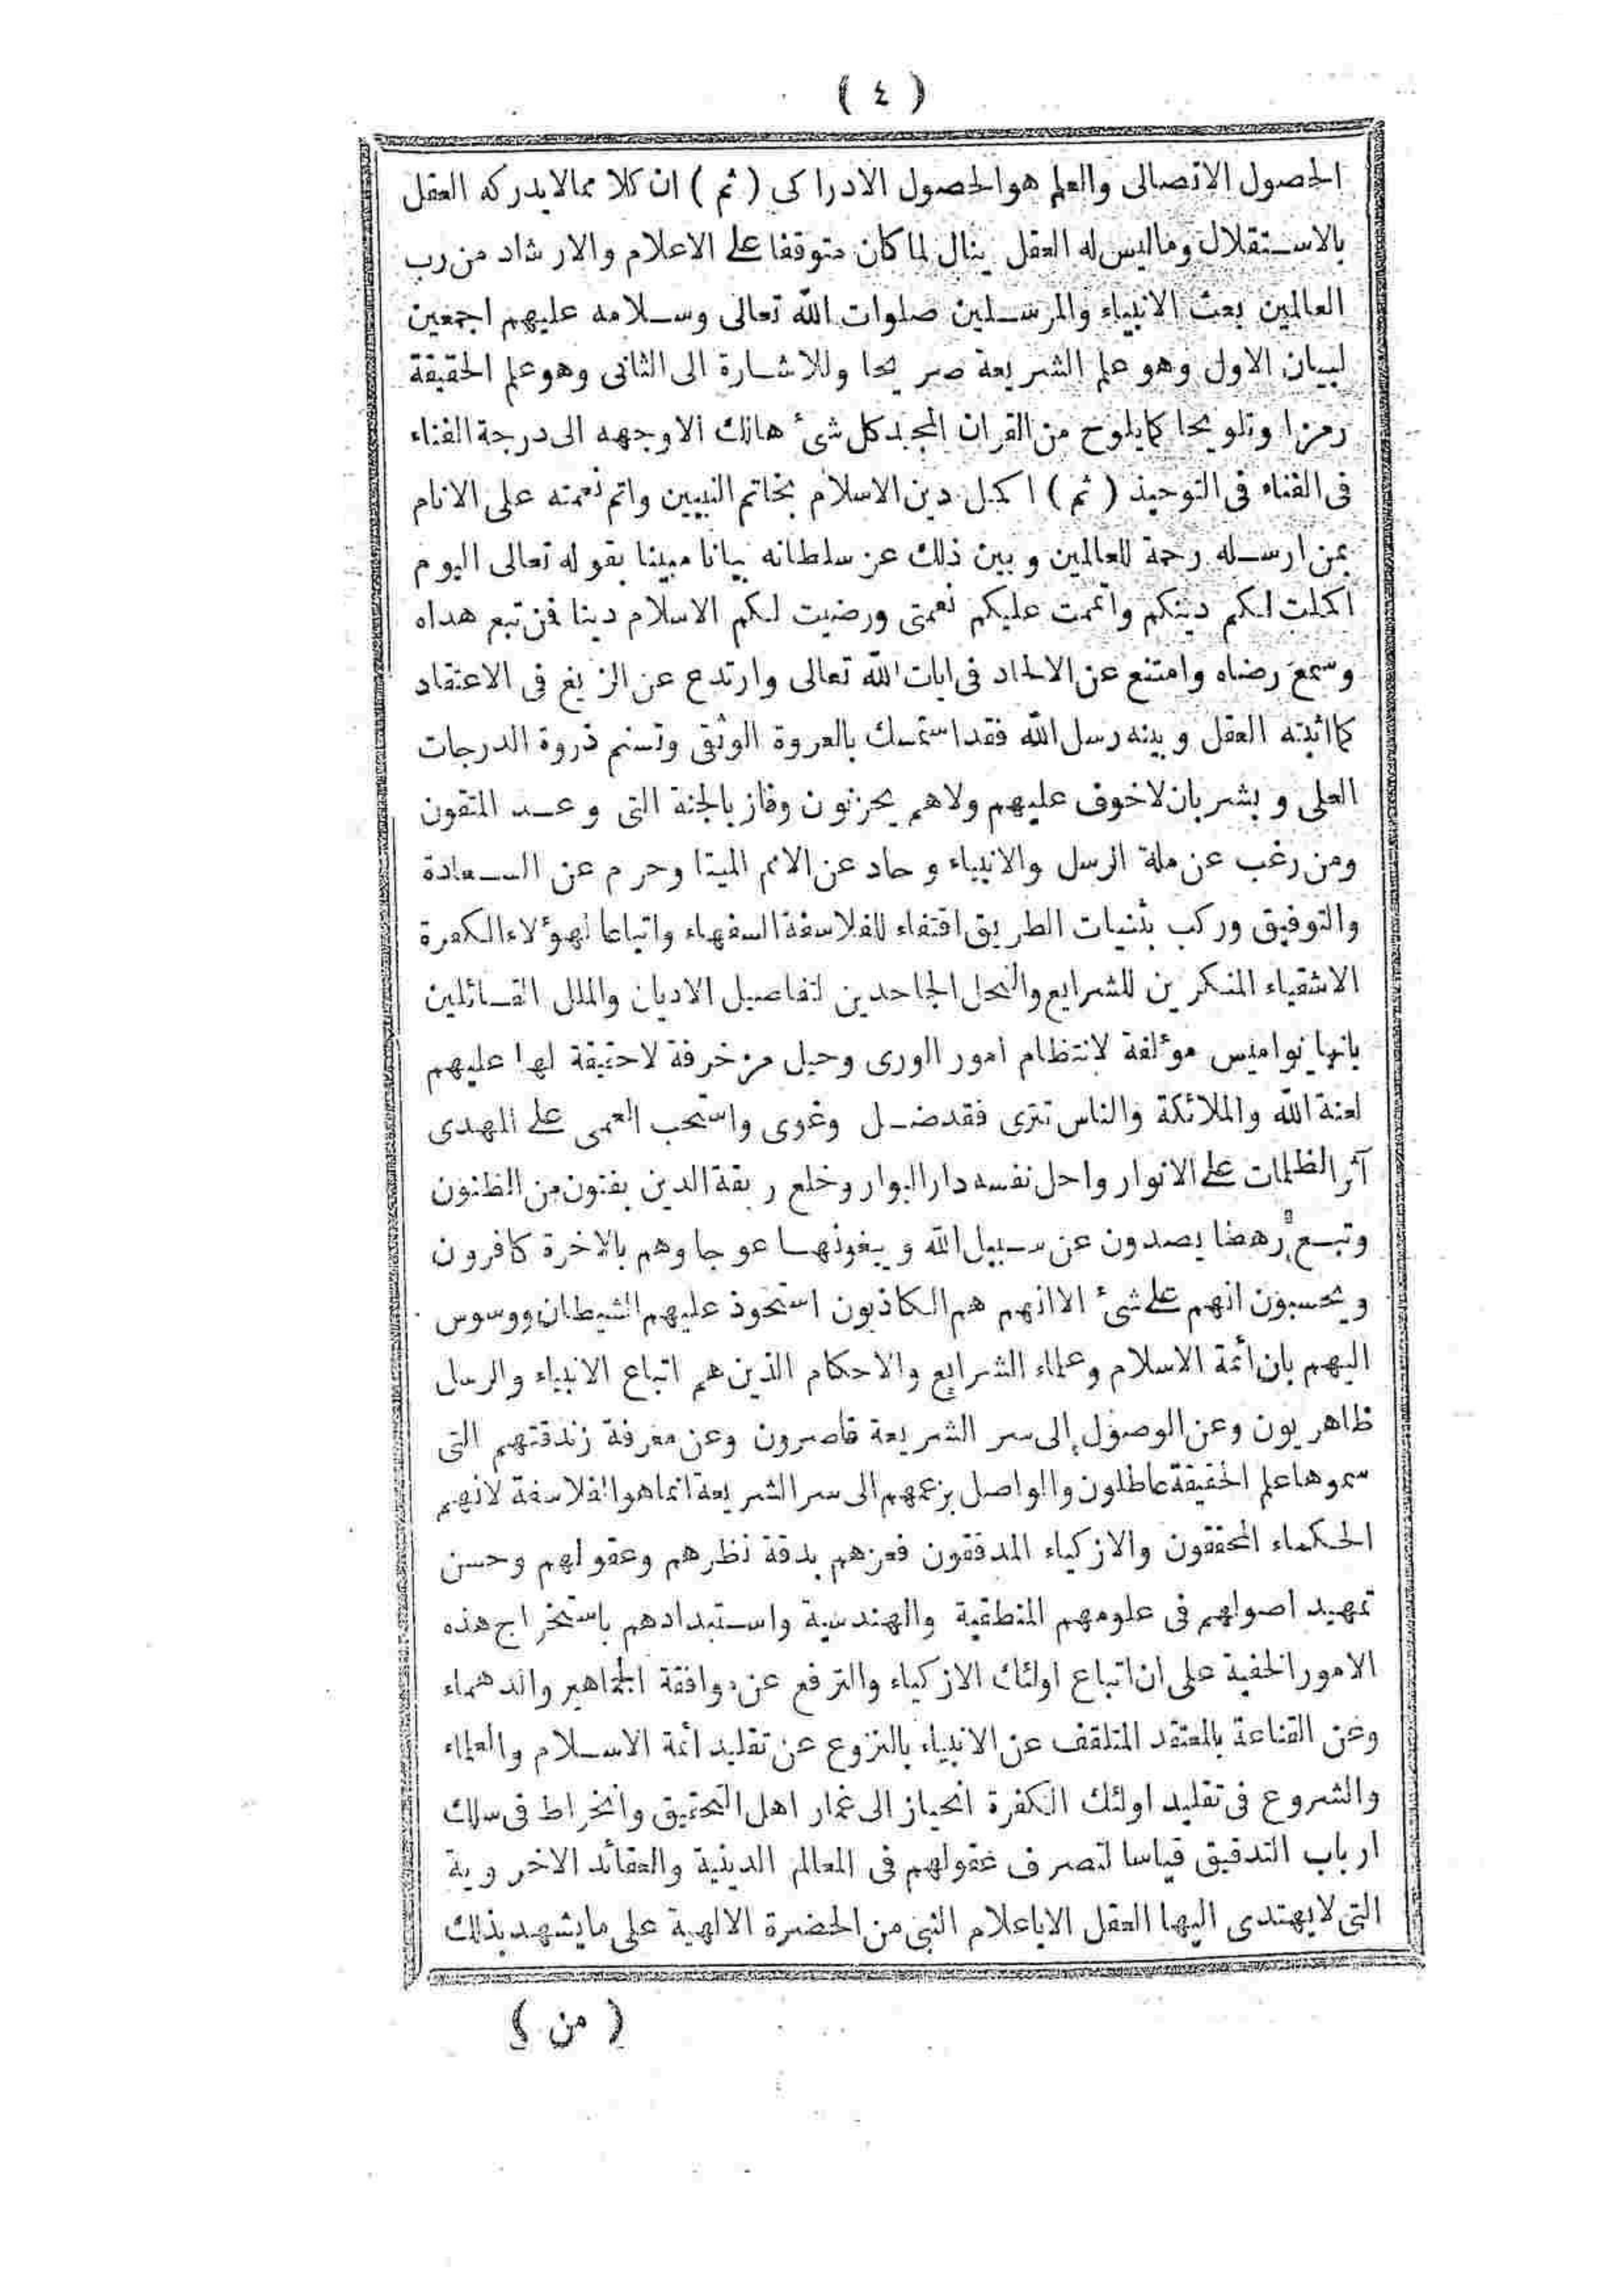 ( ٤ )
الحصول الاتصالى والعلم هو الحصول الادراكى ( ثم ) ان كلا ممالايدركه العقل
بالاستقلال وماليس له العقل ينال لما كان متوقفا على الاعلام والارشاد من رب
العالمين بعث الانبياء والمرسلين صلوات الله تعالى وسلامه عليهم اجمعين
لبيان الاول وهو علم الشريعة صريحا وللاشارة الى الثانى وهو علم الحقيقة
رمزا وتلويحا كمايلوح من القران المجيد كل شئ هالك الاوجهه الى درجة الفناء
فى الفناء فى التوحيد ( ثم ) اكمل دين الاسلام بخاتم النبيين واتم نعمته على الانام
بمن ارسله رحمة للعالمين وبين ذلك عن سلطانه بيانا مبينا بقوله تعالى اليوم
اكملت لكم دينكم واتممت عليكم نعمتى ورضيت لكم الاسلام دينا فمن تبع هداه
وسمع رضاه وامتنع عن الالحاد فى ايات الله تعالى وارتدع عن الزيغ فى الاعتقاد
كما اثبته العقل وبينه رسل الله فقد استمسك بالعروة الوثقى وتسنم ذروة الدرجات
العلى وبشر بان لاخوف عليهم ولاهم يحزنون وفاز بالجنة التى وعد المتقون
ومن رغب عن ملة الرسل والانبياء وحاد عن الامم الميتا وحرم عن السعادة
والتوفيق وركب بثنيات الطريق اقتفاء للفلاسفة السفهاء واتباعا لهؤلاء الكفرة
الاشقياء المنكرين للشرايع والنحل الجاحدين لتفاصيل الاديان والملل القائلين
بانها نواميس مؤلفة لانتظام امور الورى وحيل مزخرفة لاحقيقة لها عليهم
لعنة الله والملائكة والناس تترى فقد ضل وغوى واستحب العمى على الهدى
آثر الظلمات على الانوار واحل نفسه دار البوار وخلع ربقة الدين بفنون من الظنون
وتبع رهضا يصدون عن سبيل الله ويبغونها عوجا وهم بالاخرة كافرون
ويحسبون انهم على شئ الاانهم هم الكاذبون استحوذ عليهم الشيطان ووسوس
اليهم بان أئمة الاسلام وعلماء الشرايع والاحكام الذين هم اتباع الانبياء والرسل
ظاهريون وعن الوصول إلى سر الشريعة قاصرون وعن معرفة زندقتهم التى
سموها علم الحقيقة عاطلون والواصل بزعمهم الى سر الشريعة انما هو الفلاسفة لانهم
الحكماء المحققون والازكياء المدققون فعزهم بدقة نظرهم وعقولهم وحسن
تمهيد اصولهم فى علومهم المنطقية والهندسية واستبدادهم باستخراج هذه
الامور الخفية على ان اتباع اولئك الازكياء والترفع عن موافقة الجماهير والدهماء
وعن القناعة بالمعتقد المتلقف عن الانبياء بالنزوع عن تقليد أئمة الاسلام والعلماء
والشروع فى تقليد اولئك الكفرة انحياز الى غمار اهل التحقيق وانخراط فى سلك
ارباب التدقيق قياسا لتصرف عقولهم فى المعالم الدينية والعقائد الاخروية
التى لايهتدى اليها العقل الاباعلام النبى من الحضرة الالهية على مايشهد بذلك
( من )